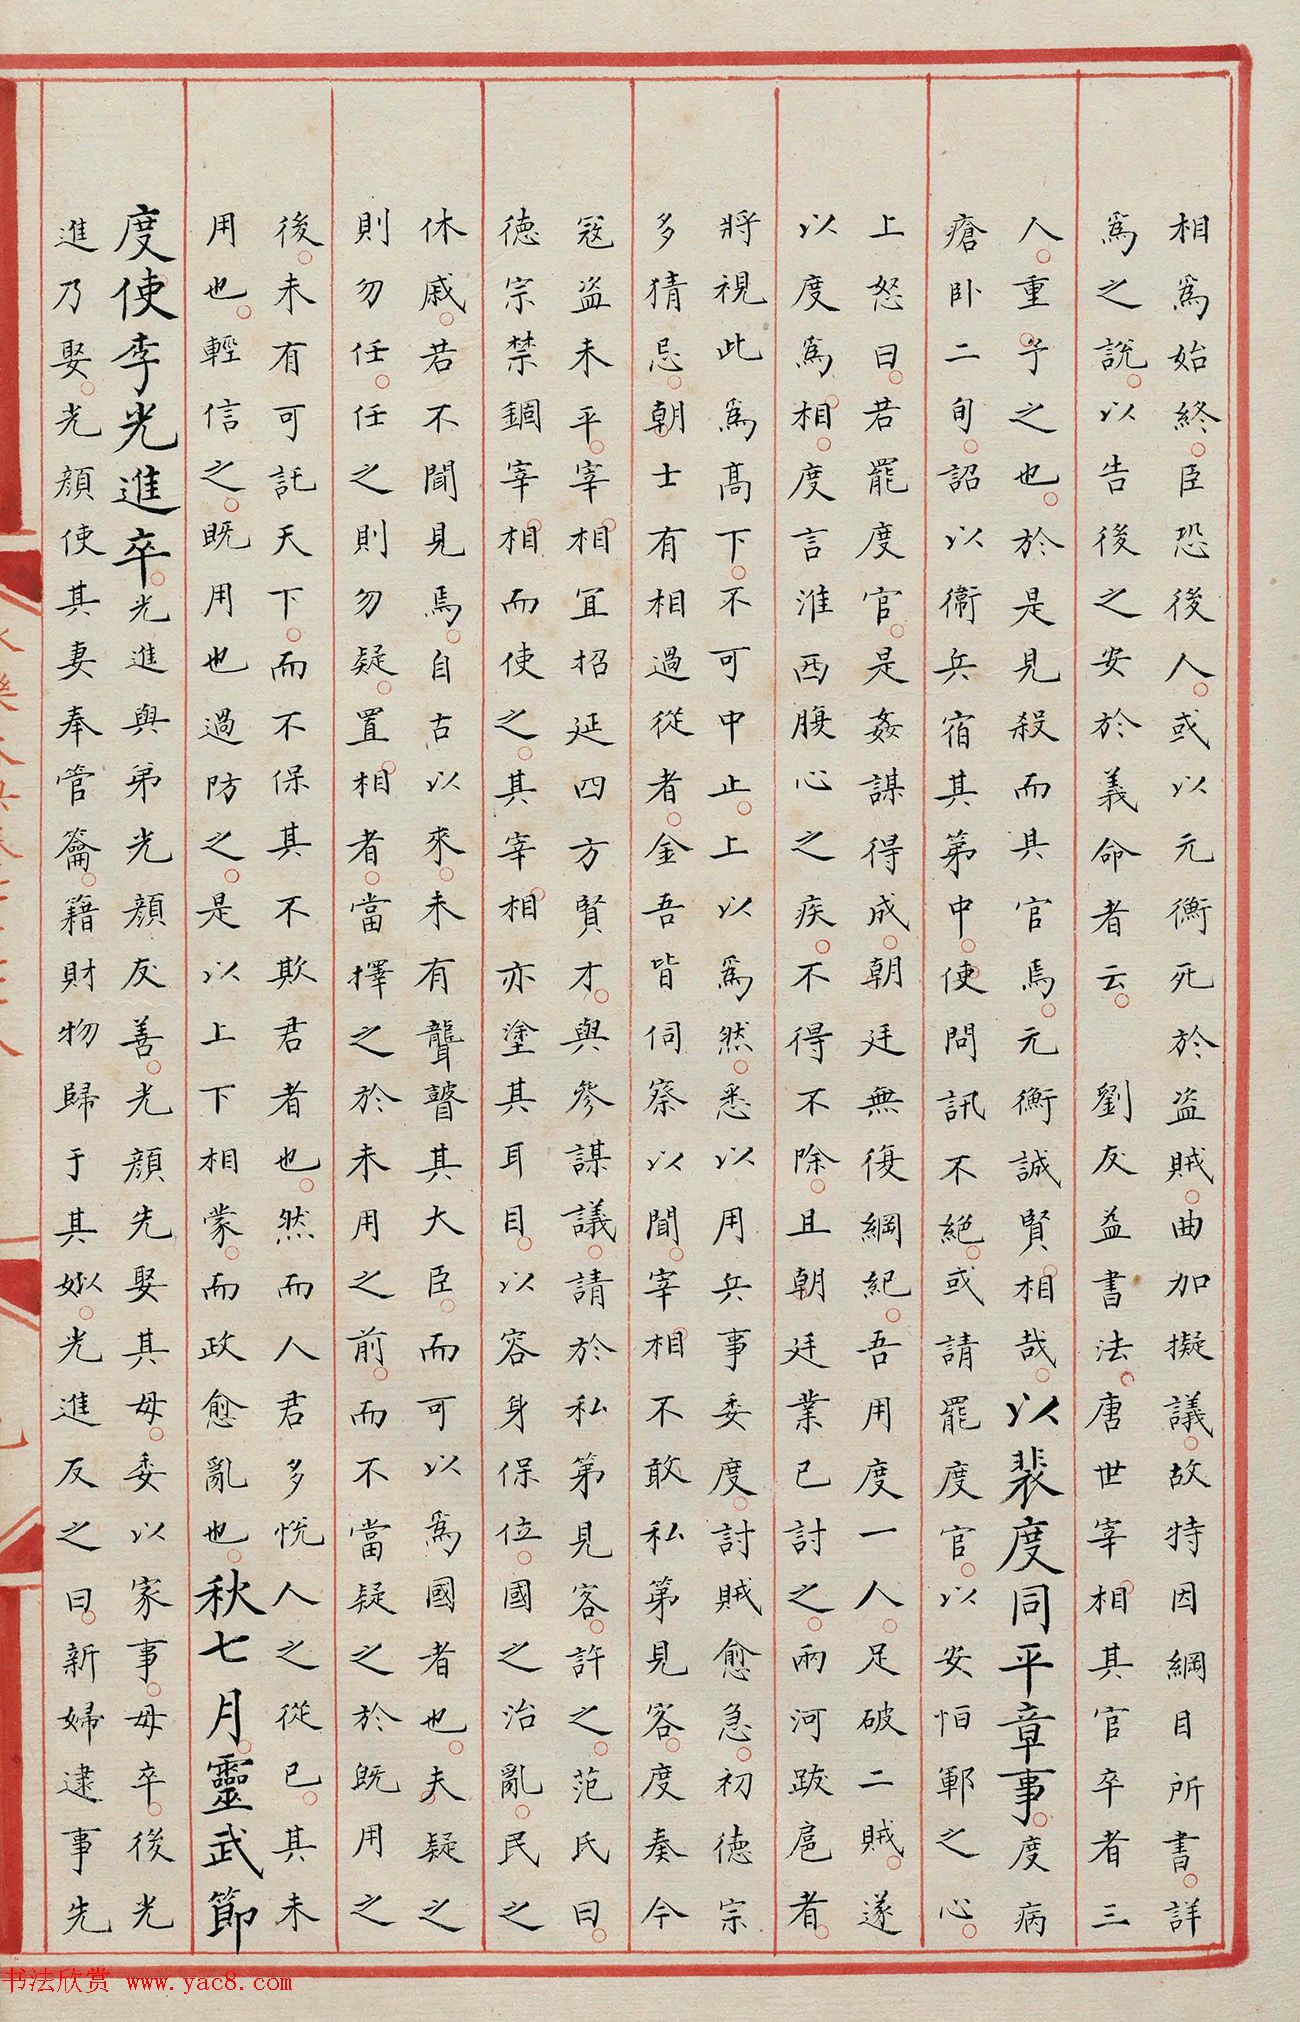 相爲始終臣恐後人或以元衡死於盗賊曲加擬議故特因綱目所書詳
爲之說以告後之安於義命者云　劉友益書法唐世宰相其官卒者三
人重予之也於是見殺而具官焉元衡誠賢相哉以裴度同平章事度病
瘡卧二旬詔以衛兵宿其第中使問訊不絕或請罷度官以安恒鄆之心
上怒曰若罷度官是姦謀得成朝廷無復綱紀吾用度一人足破二賊遂
以度爲相度言淮西腹心之疾不得不除且朝廷業已討之兩河跋扈者
將視此爲高下不可中止上以爲然悉以用兵事委度討賊愈急初德宗
多猜忌朝士有相過從者金吾皆伺察以聞宰相不敢私第見客度奏今
寇盗未平宰相宜招延四方賢才與參謀議請於私第見客許之范氏曰
德宗禁錮宰相而使之其宰相亦塗其耳目以容身保位國之治亂民之
休戚若不聞見焉自古以來未有聾瞽其大臣而可以爲國者也夫疑之
則勿任任之則勿疑置相者當擇之於未用之前而不當疑之於既用之
後未有可託天下而不保其不欺君者也然而人君多悅人之從已其未
用也輕信之既用也過防之是以上下相蒙而政愈亂也秋七月靈武節
度使李光進卒光進與弟光顔友善光顔先娶其母委以家事母卒後光
進乃娶光顔使其妻奉管籥籍財物歸于其姒光進反之曰新婦逮事先
书法欣赏 www.yac8.com